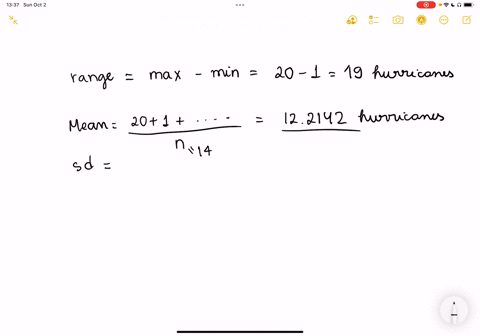 13:37 Sun Oct 2
range = max - min = 20 - 1 = 19 hurricanes
Mean = 20 + 1 + ..... / n = 14 = 12.2142 hurricanes
sd =